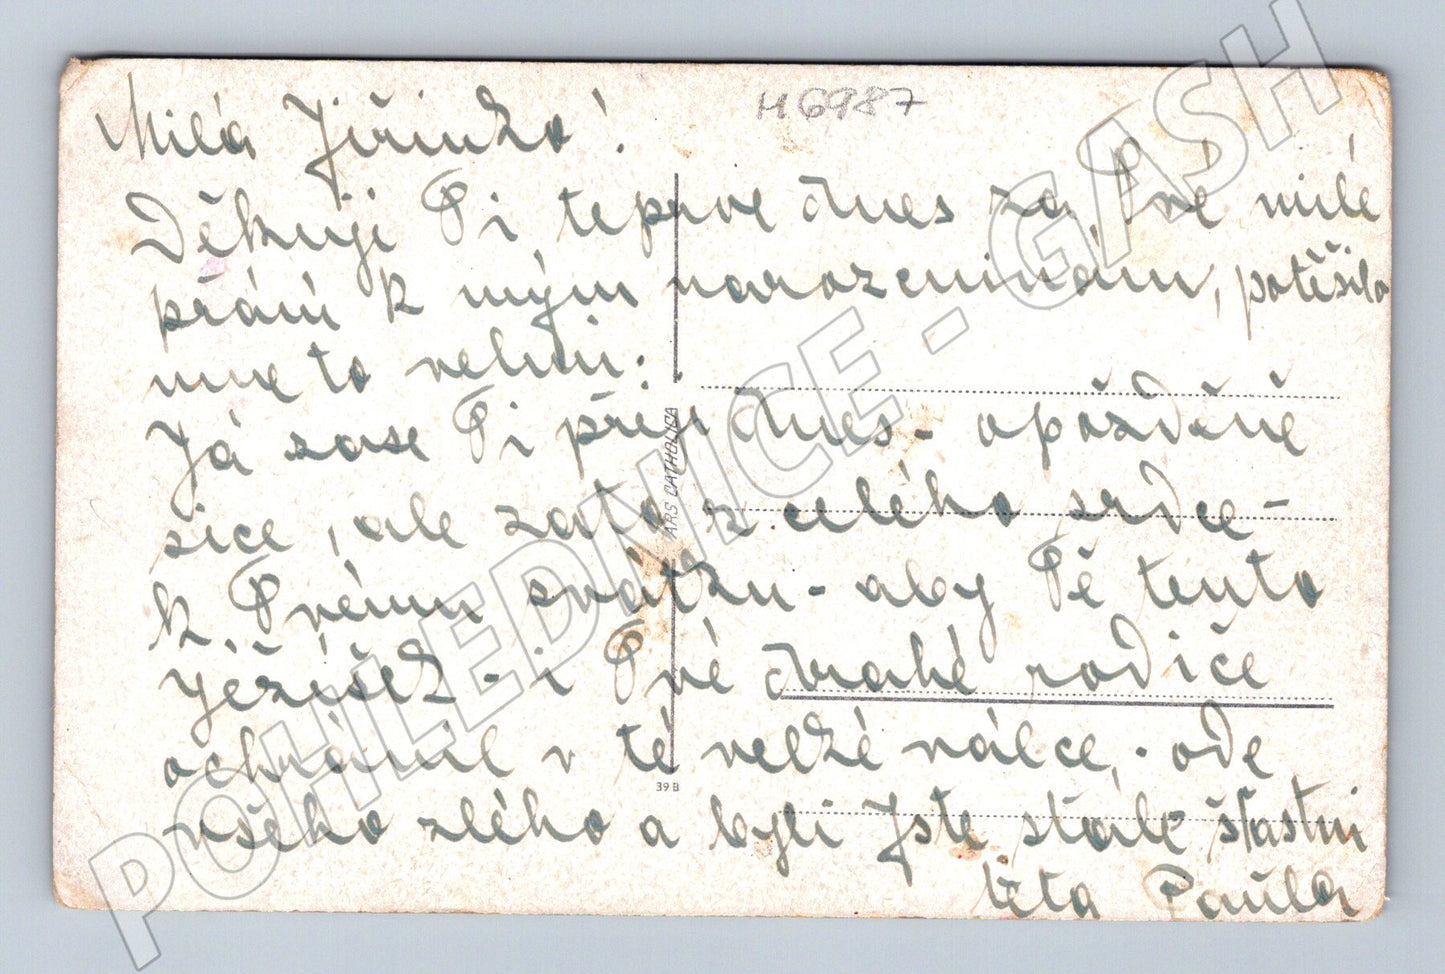 H6987
Milá Jiřinko!
Děkuji Ti teprve dnes za Tvé milé
přání k mým narozeninám, potěšilo
mne to velmi:
Já zase Ti přeji dnes - opožděně
sice, ale zato z celého srdce -
k Tvému svátku - aby Tě tento
Ježíšek - i Tvé drahé rodiče
ochránil v té velké válce, - ode
všeho zlého a byli Jste stále šťastni
teta Pavla
ARS CATHOLICA
39 B
POHLEDNICE - GASH